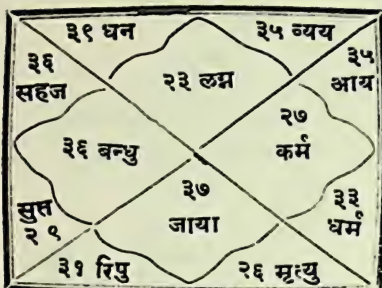 ३९ धन
३५ व्यय
३६
सहज
२३ लग्न
३५
आय
२७
कर्म
३६ बन्धु
३७
जाया
सुत
२९
३३
धर्म
३१ रिपु
२६ मृत्यु